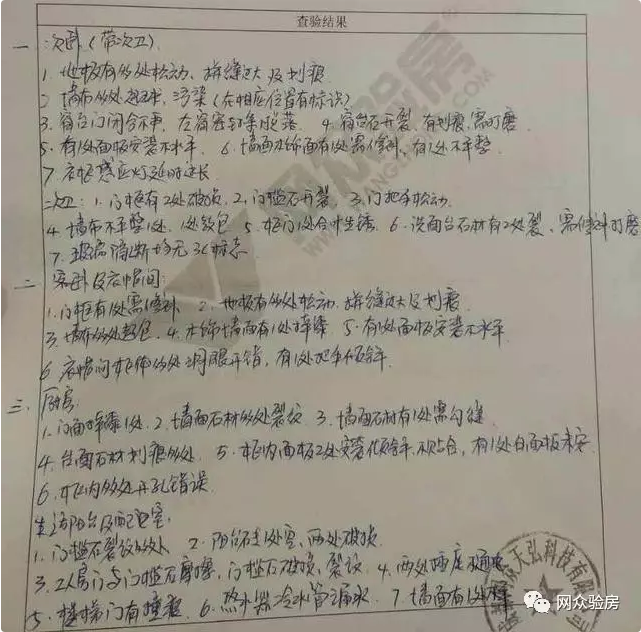 查验结果
一 次卧(带次卫)
1. 地板有多处松动、拼缝过大及划痕
2. 墙布多处起球、污染(在相应位置有标识)
3. 窗台门闭合不严、左窗密封条脱落 4. 窗台石开裂、有划痕、需打磨
5. 有1处面板安装不水平 6. 墙面木饰面有1处需修补,有1处不平整
7. 衣柜感应灯延时过长
次卫: 1. 门框有2处破损, 2. 门槛石开裂 3. 门把手松动
4. 墙布不平整1处, 1处鼓包 5. 柜门1处合叶生锈 6. 洗面台石材有2处裂、需修补打磨
7. 玻璃隔断均无3C标志
二 客卧及衣帽间:
1. 门框有1处需修补 2. 地板有多处松动、拼缝过大及划痕
3. 墙布多处起包 4. 木饰墙面有1处掉漆 5. 有1处面板安装不水平
6. 衣帽间柜体多处 孔眼开错, 有1处把手倾斜
三、厨房:
1. 门面掉漆1处, 2. 墙面石材多处裂纹 3. 墙面石材有1处需勾缝
4. 台面石材划痕多处 5. 柜内面板2处安装倾斜、不贴合, 有1处白面板未安
6. 柜内多处开孔错误
生活阳台及配电室:
1. 门槛石裂纹多处 2. 阳台砖1处空、两处破损
3. 工人房门与门槛石摩擦, 门槛石破损、裂纹 4. 两处插座不通电
5. 楼梯门有撞痕 6. 热水器冷水管漏水 7. 墙面有1处
天弘科技有限
网众验房